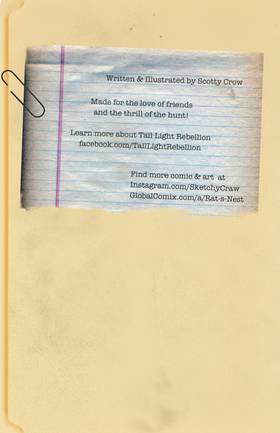 Written & Illustrated by Scotty Crow
Made for the love of friends
and the thrill of the hunt!
Learn more about Tail Light Rebellion
facebook.com/TailLightRebellion
Find more comic & art at
Instagram.com/SketchyCraw
GlobalComix.com/a/Rat-s-Nest